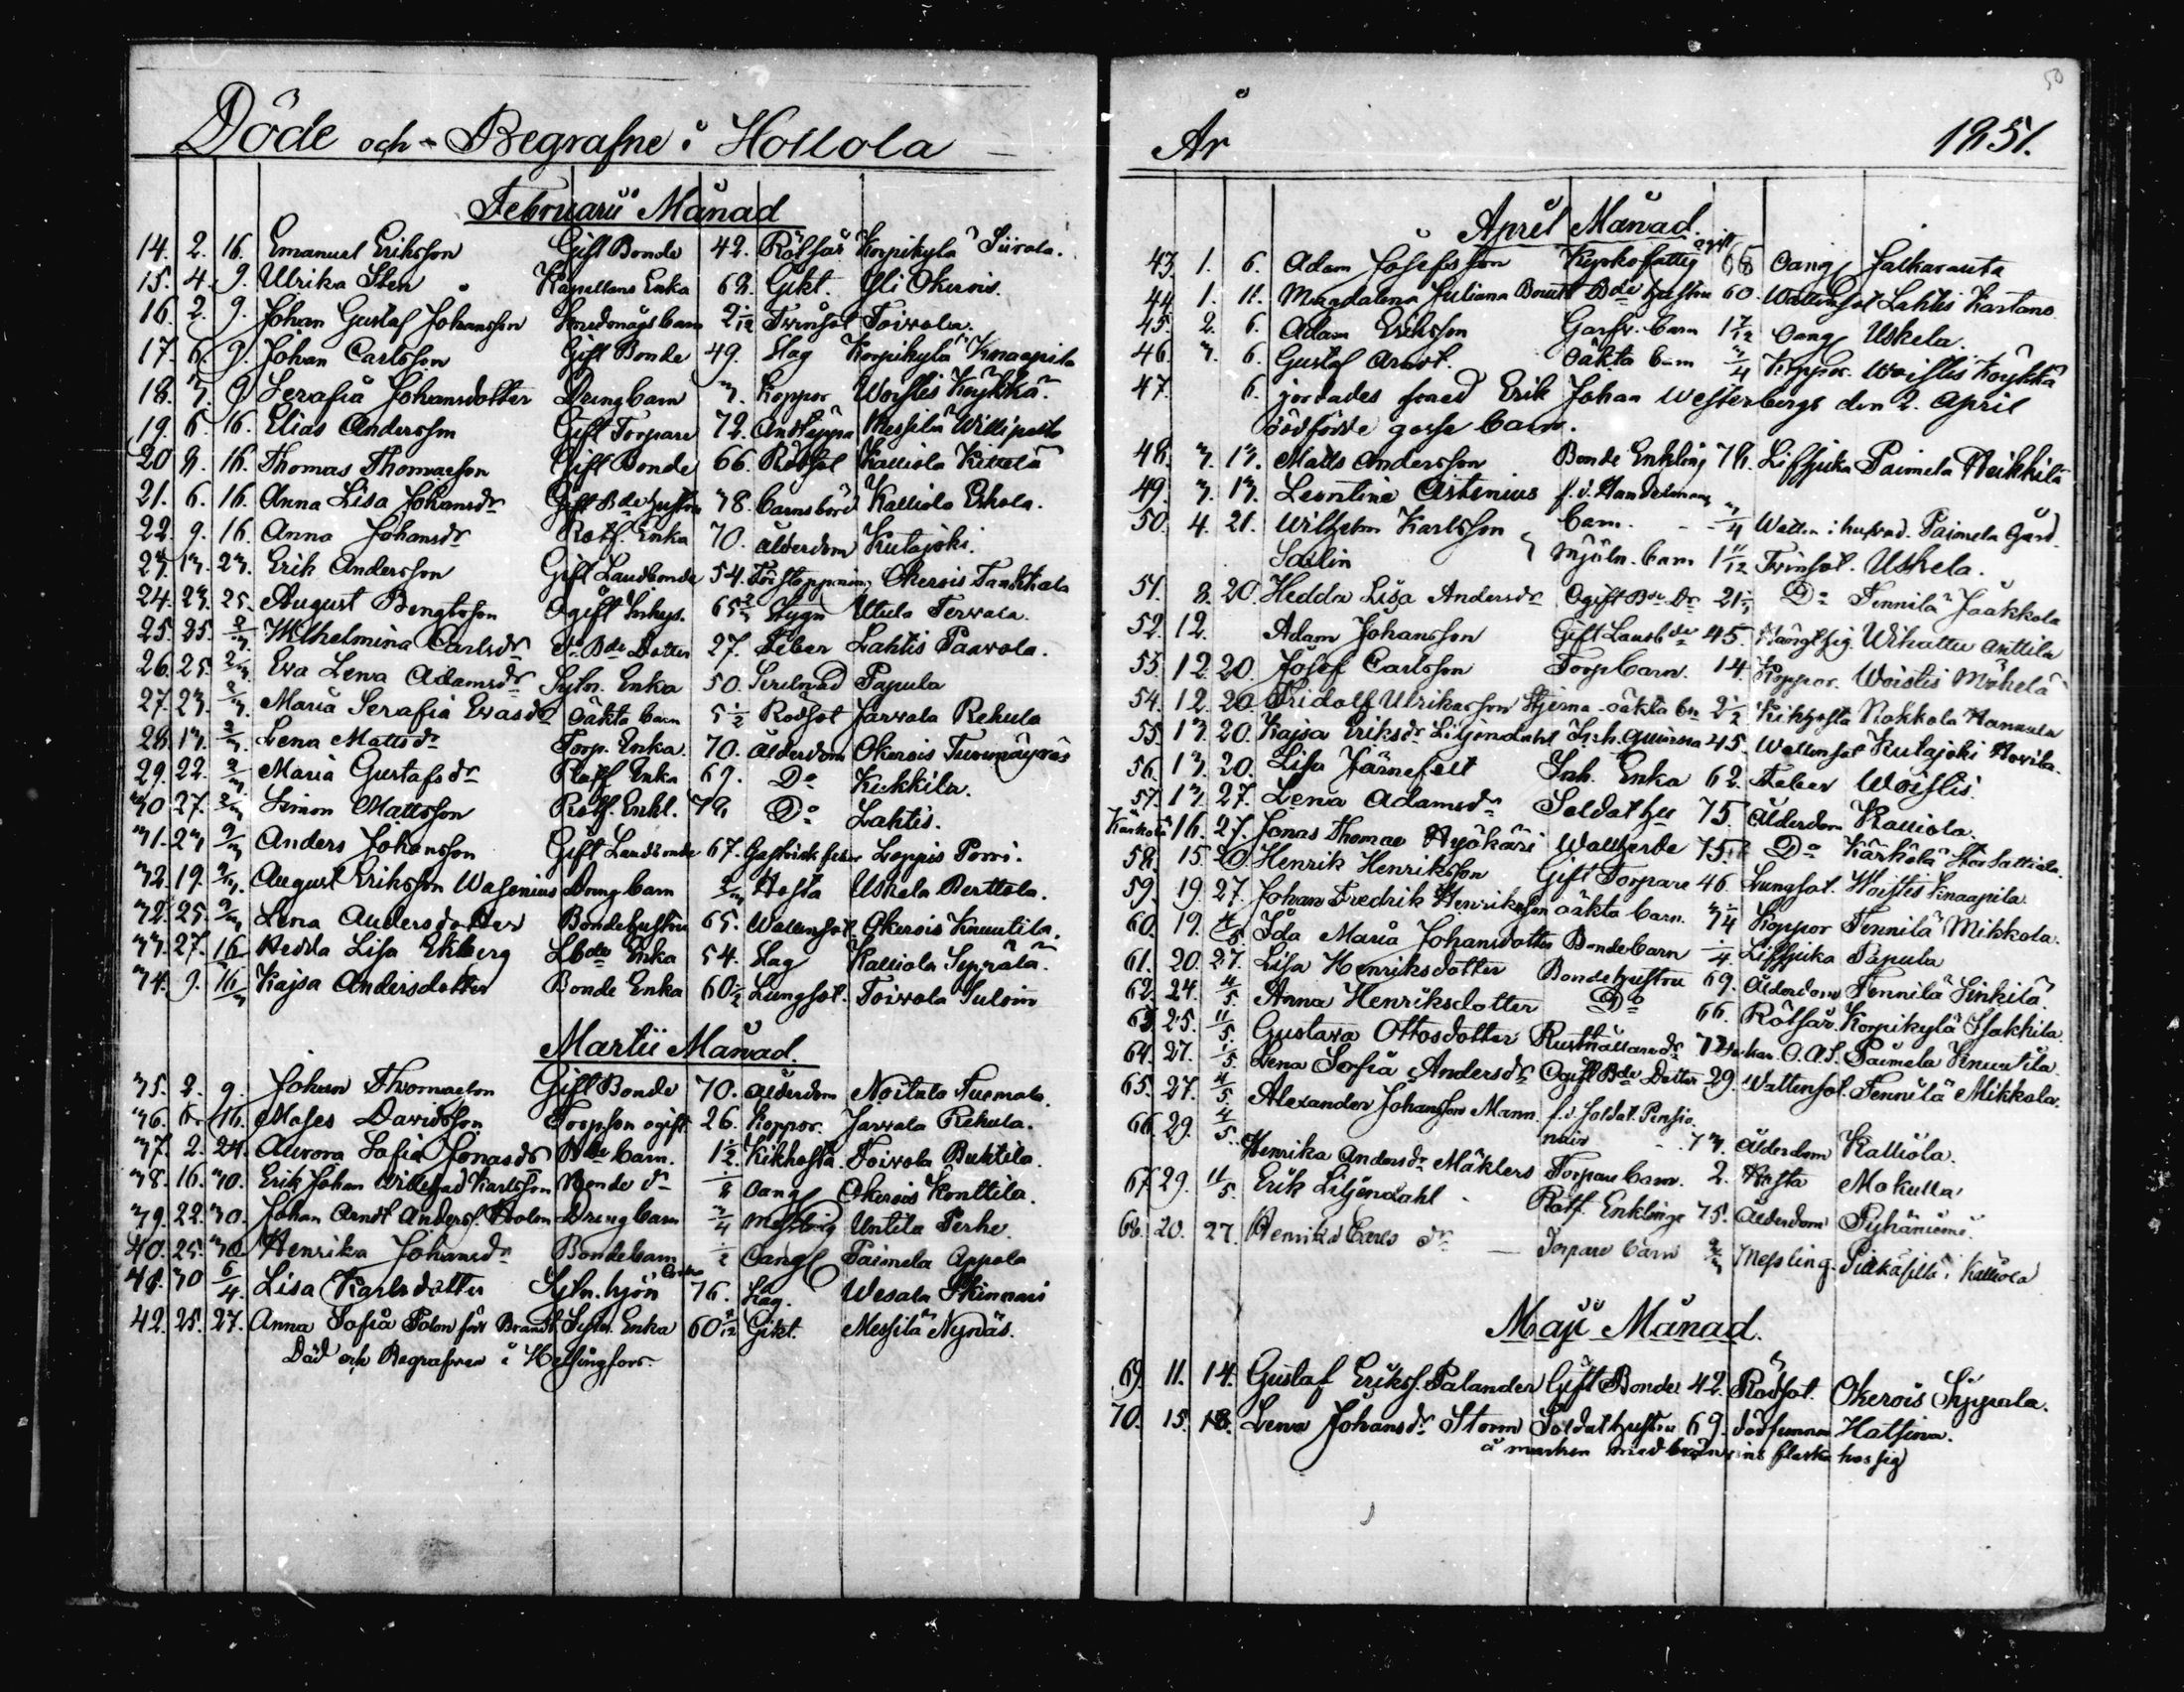 Döde och Begrafne i Hollola
Februarii Månad
14. 2. 16. Emanuel Eriksson Gift Bonde 42. Rötfår Korpikylä Siirola.
15. 4. 9. Ulrika Sten Kapellans Enka 68. Gikt. Yli Okerois.
16. 2. 9. Johan Gustaf Johansson barn 2 1/12 Twinsot Toivola.
17. 6. 9. Johan Carlsson Gift Bonde 49. Slag Korpikylä Knaapila
18. 3. 9 Serafia Johansdotter Drengbarn 3. Koppor Woistis Köykkä.
19. 6. 16. Elias Andersson Gift Torpare 72. Andtäppa Messilä Willipelto
20 8. 16. Thomas Thomasson Gift Bonde 66. Rödsot Kalliola Kittelä
21. 6. 16. Anna Lisa Johansdr Gift Bde hustru 38. barnsbörd Kalliola Eskola.
22. 9. 16. Anna Johansdr Rotf. Enka 70. ålderdom Kutajoki.
23. 13. 23. Erik Andersson Gift Landbonde 54. Förstoppning Okerois Tanskala
24. 23. 25. August Bengtsson Ogift Inhys. 65 2/3 Stygn Utula Terwala.
25. 25. 2/3. Wilhelmina Carlsdr Bde Dotter 27. Feber Lahtis Paavola.
26. 25. 2/3. Eva Lena Adamsdr Sytn. Enka 50. Papula
27. 23. 2/3. Maria Serafia Evasdr oäkta barn 5 1/2 Rodsot Jarvala Rekula
28. 13. 2/3. Lena Mattsdr Torp. Enka. 70. Ålderdom Okerois
29. 22. 2/3 Maria Gustafsdr Rotf Enka 69. Do Kukkila.
30 27. 2/3 Simon Mattsson Rotf. Enkl. 78 Do Lahtis.
31. 23 2/3 Anders Johansson Gift Landbonde 67. feber Loppis Porri.
32. 19. 2/3. August Eriksson Wasenius Drengbarn 2/3 Hosta Uskela Berttola.
32. 25. 2/3 Lena Andersdotter Bondehustru 65. Wattensot Okerois Knuutila.
33. 27. 16 Hedda Lisa Ekberg Lbde Enka 54. Slag Kalliola Seppälä.
34. 9. 16/3 Kajsa Andersdotter Bonde Enka 60 1/2 Lungsot. Toivola
Martii Månad.
35. 2. 9. Johan Thomasson Gift Bonde 70. Ålderdom Noitala Tuomola.
36. 6. 16. Moses Davidsson Torpson ogift 26. Koppor. Jarvala Rekula.
37. 2. 24. Aurora Sofia Jonasdr Bde barn. 1 1/2. Kikhosta. Toivola Buktila.
38. 16. 30. Erik Johan Willehad Karlsson Bonde dr 1/8 oang Okerois Konttila.
39. 22. 30. Johan Arndt Anderss. Holm Drengbarn 3/4 Messling Untila Perhe.
40. 25. 30 Henrika Johansdr Bondebarn 1/2 oang Paimela Appola
41. 30 6/4. Lisa Karlsdotter Sytn. hjon Enka 76. Slag. Wesala Skinnari
42. 25. 27. Anna Sofia Polon född Brandt Sytn. Enka 60 Gikt. Messilä Nynäs.
Död och Begrafven i Helsingfors.
50
År 1851.
April Månad.
43. 1. 6. Adam Josefsson Kyrkofattig ogift 68 oang Jalkaranta
44. 1. 11. Magdalena Juliana Bde hustru 60. Wattensot Lahtis Kartano
45. 2. 6. Adam Eriksson barn 1 7/12 oang Uskela.
46. 3. 6. Gustaf Arndt. oäkta barn 3/4 Koppor. Woistis Köykkä
47. 6. jordades Erik Johan Westerbergs den 2. April
dödfödde gosse barn.
48. 3. 13. Matts Andersson Bonde Enkling 78. Lifsjuka Paimela Heikkilä
49. 3. 13. Leontina Astenius f.d. Handelsmans
barn. 3/4 Watten i hufvud. Paimela Gård.
50. 4. 21. Wilhelm Karlsson
Sallin Mjöln. barn 1 11/12 Twinsot. Uskela.
51. 8. 20. Hedda Lisa Andersdr Ogift Bde Dr 21 1/2 Do Tennilä Jaakkola
52. 12. Adam Johansson Gift Landbde 45. Hängt sig Wihattu Anttila
53. 12. 20. Josef Carlsson Torp barn. 14. Koppor. Woistis Mäkelä
54. 12. 20. Fridolf Ulrikasson Stjerna oäkta bn 2 1/2 Kikhosta Nokkola Hannula
55. 13. 20. Kajsa Eriksdr Liljendahl Inh. qvinna 45. Wattensot Kutajoki Hovila.
56. 13. 20. Lisa Järnefelt Inh. Enka 62. Feber Woistis.
57. 13. 27. Lena Adamsdr Soldat hu 75. Ålderdom Kalliola.
Kärkölä 16. 27. Jonas Thomae Hyökäri 75. Do Kärkölä
58. 15. 20. Henrik Henriksson Gift Torpare 46. Lungsot. Woistis Knaapila.
59. 19. 27. Johan Fredrik Henriksson oäkta barn. 3 1/4 Koppor Tennilä Mikkola.
60. 19. 4/5. Ida Maria Johansdotter Bondebarn 1/4. Lifsjuka Papula
61. 20. 27. Lisa Henriksdotter Bondehustru 69. Ålderdom Tennilä Sinkilä.
62. 24. 4/5. Anna Henriksdotter Do 66. Rötfår. Korpikylä Isakkila.
63. 25. 11/5. Gustava Ottosdotter Rusthållaredr. Paimela Knuutila.
64. 27. 1/5. Lena Sofia Andersdr Ogift Bde Dotter 29. Wattensot. Tennilä Mikkola.
65. 27. 4/5 Alexander Johansson Mann. f.d. Soldat. Pensio
när 73. Ålderdom Kalliola.
66. 29. 4/5. Henrika Andersdr Mäklers Torpare barn. 2. Hosta Mokulla
67. 29. 11/5. Erik Liljendahl Rotf. Enkling 75. Ålderdom Pyhäniemi.
68. 20. 27. Henrika Carlsdr Torpare barn 2/3 Messling. Kalliola
Maji Månad.
69. 11. 14. Gustaf Erikss. Palander Gift Bonde 42. Rödsot. Okerois Seppälä.
70. 15. 18. Lena Johansdr Storm Soldathustru 69. död funnen Hatsina.
å marken med brännvins flaska hos sig